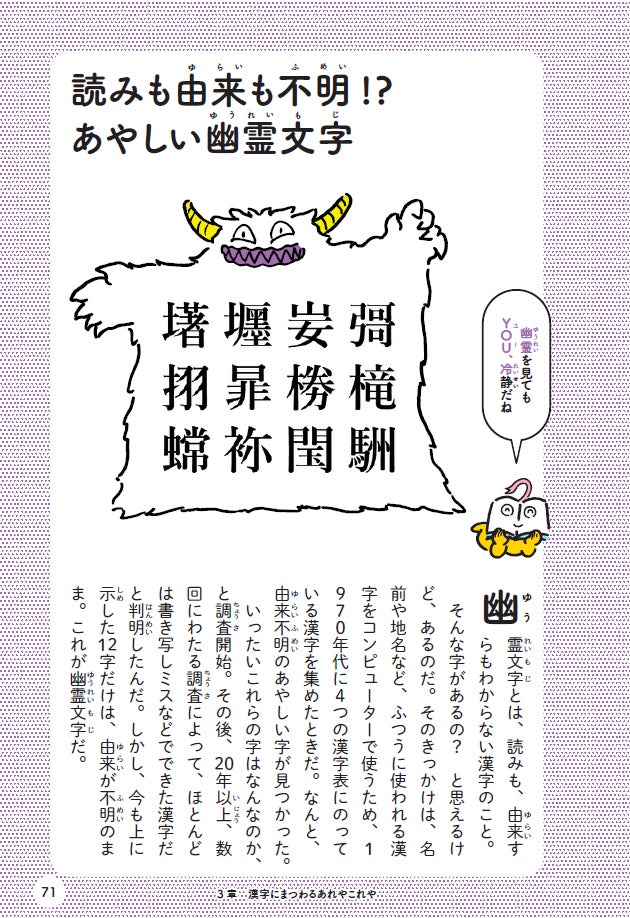 読みも由来も不明!?
あやしい幽霊文字
墸壥妛彁
挧暃椦槞
蟐袮閠駲
幽霊を見ても
YOU、冷静だね
幽霊文字とは、読みも、由来す
らもわからない漢字のこと。
そんな字があるの？　と思えるけ
ど、あるのだ。そのきっかけは、名
前や地名など、ふつうに使われる漢
字をコンピューターで使うため、1
970年代に4つの漢字表にのって
いる漢字を集めたときだ。なんと、
由来不明のあやしい字が見つかった。
いったいこれらの字はなんなのか、
と調査開始。その後、20年以上、数
回にわたる調査によって、ほとんど
は書き写しミスなどでできた漢字だ
と判明したんだ。しかし、今も上に
示した12字だけは、由来が不明のま
ま。これが幽霊文字だ。
71
3章：漢字にまつわるあれやこれや